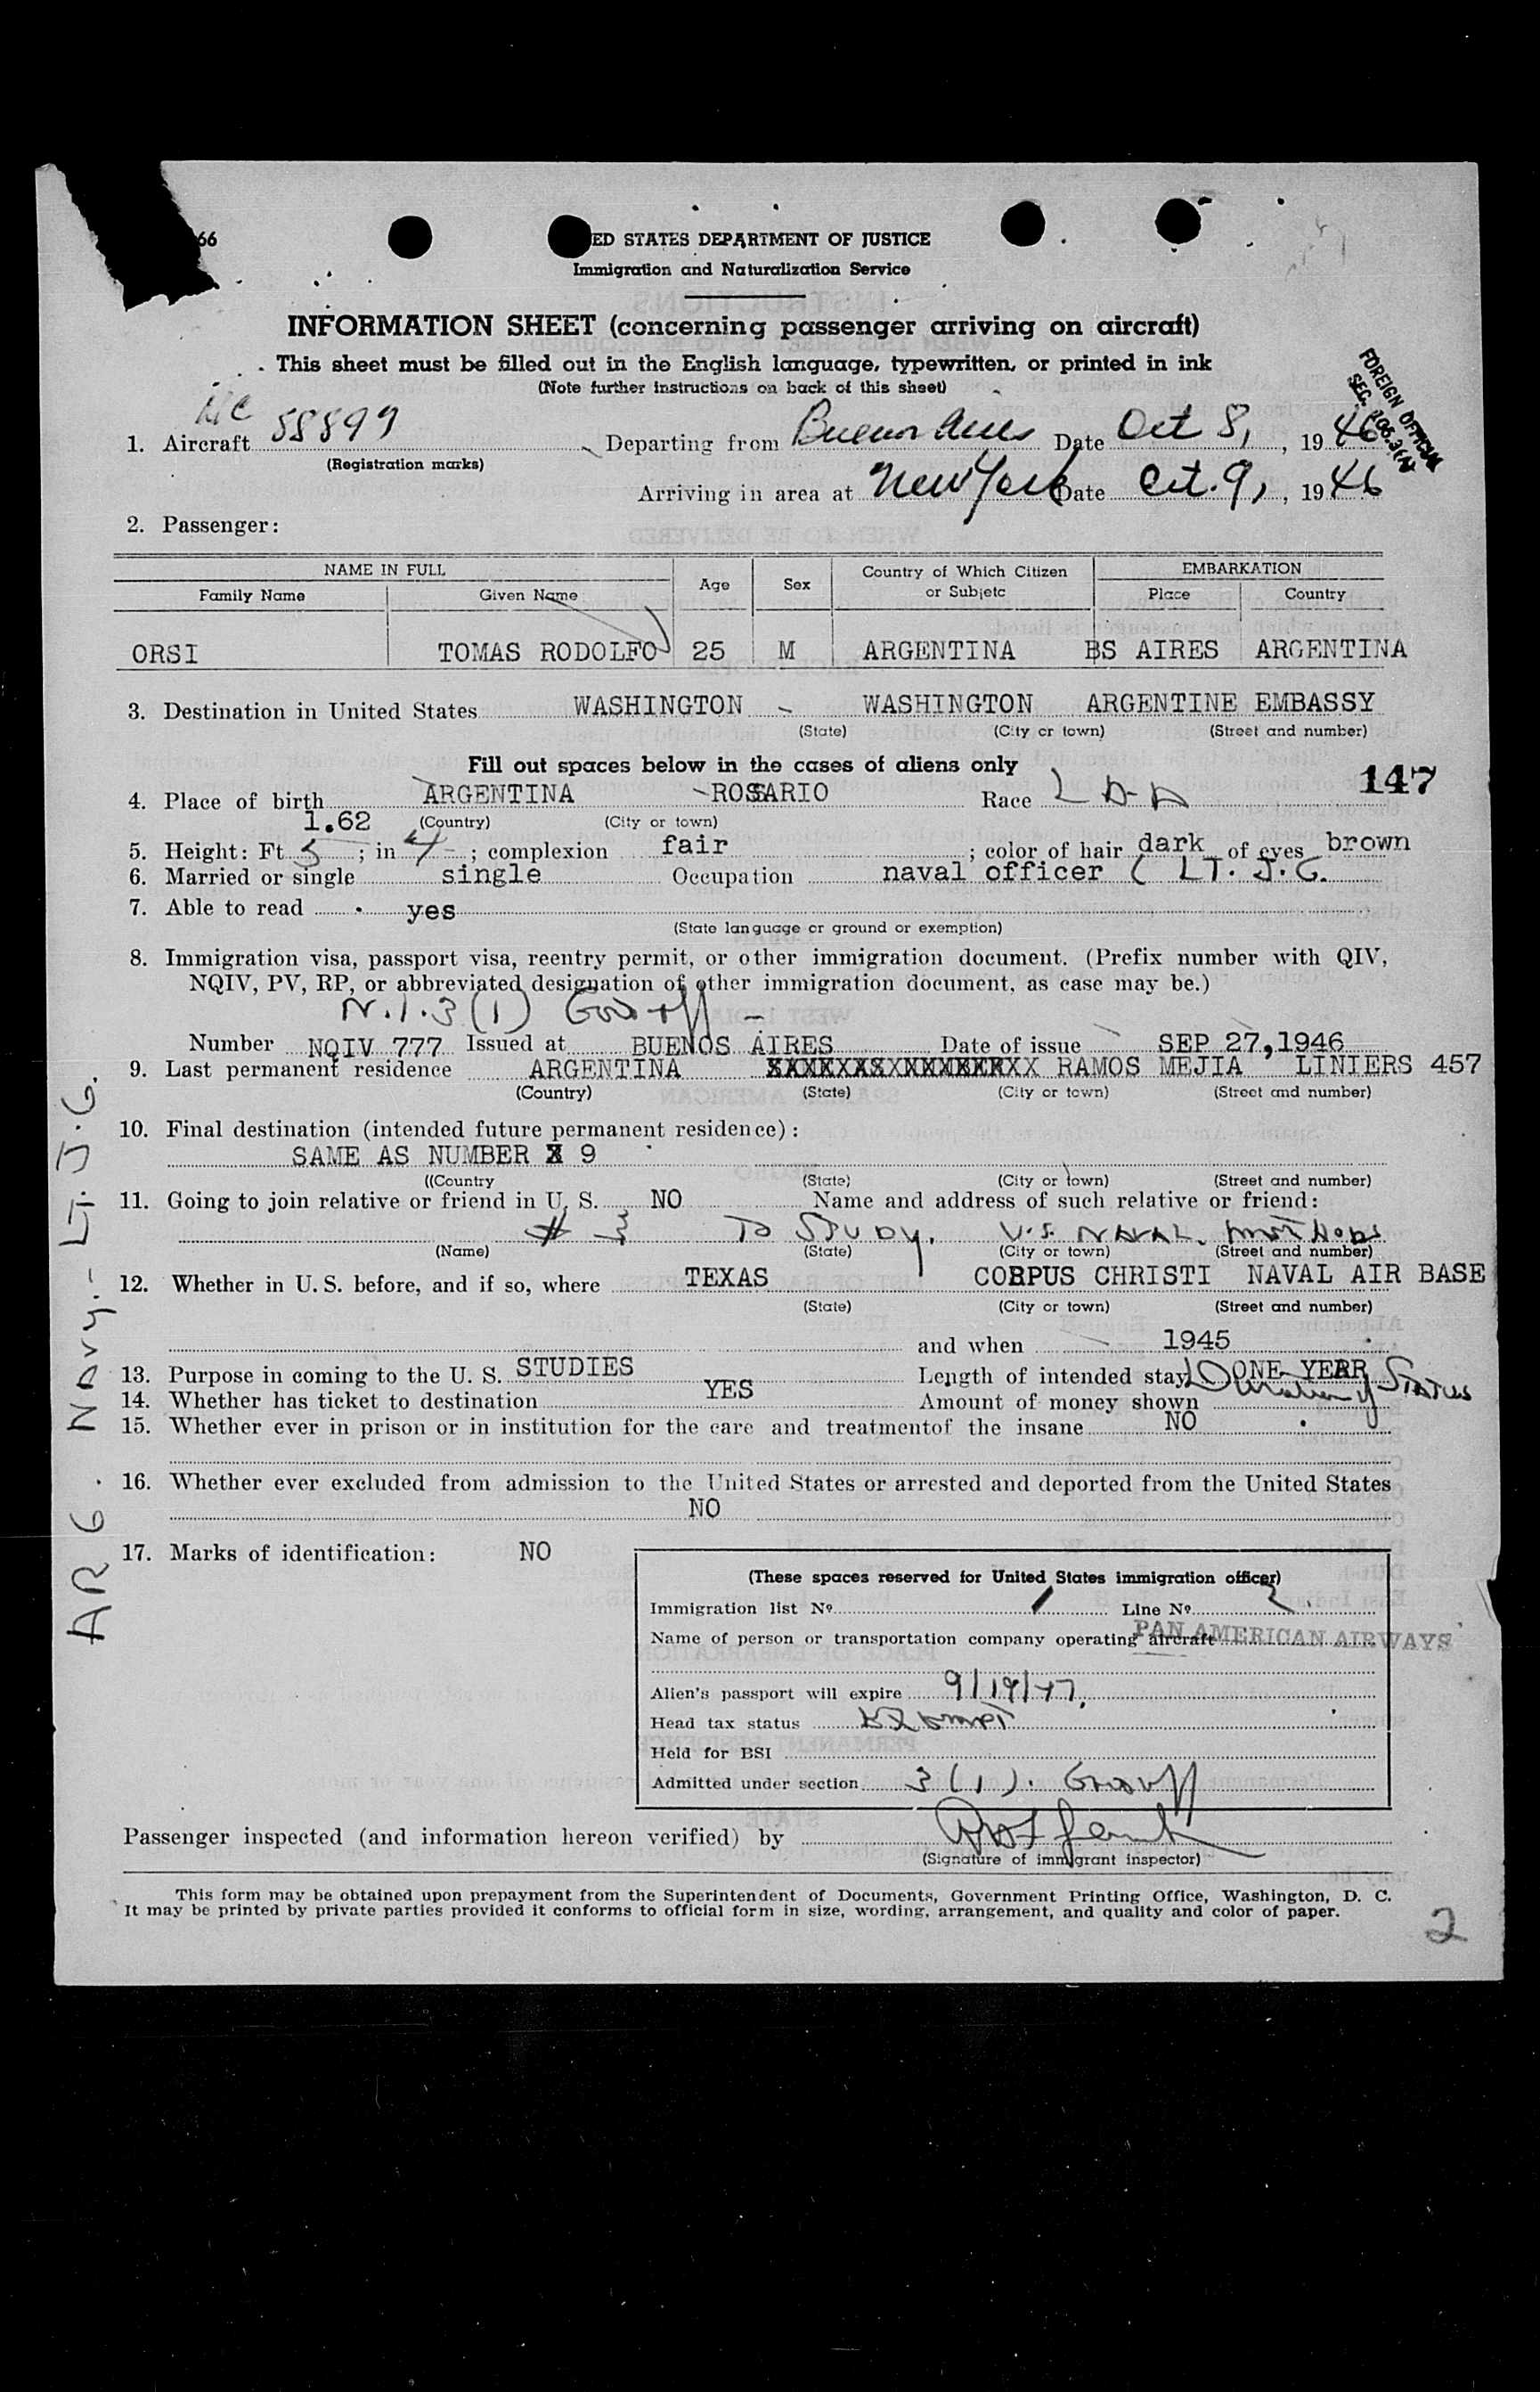 66
ED STATES DEPARTMENT OF JUSTICE
Immigration and Naturalization Service
INFORMATION SHEET (concerning passenger arriving on aircraft)
This sheet must be filled out in the English language, typewritten, or printed in ink
(Note further instructions on back of this sheet)
FOREIGN OFFICIAL
SEC.
1. Aircraft NC 88899 Departing from Buenos Aires Date Oct 8, 1946
(Registration marks)
Arriving in area at New York Date Oct. 9, 1946
2. Passenger:
NAME IN FULL Age Sex Country of Which Citizen or Subjetc EMBARKATION
Family Name Given Name Place Country
ORSI TOMAS RODOLFO 25 M ARGENTINA BS AIRES ARGENTINA
3. Destination in United States WASHINGTON - WASHINGTON ARGENTINE EMBASSY
(State) (City or town) (Street and number)
Fill out spaces below in the cases of aliens only
147
4. Place of birth ARGENTINA - ROSARIO Race
1.62 (Country) (City or town)
5. Height: Ft. 5 ; in 4 ; complexion fair ; color of hair dark of eyes brown
6. Married or single single Occupation naval officer ( LT. J.G.
7. Able to read yes
(State language or ground or exemption)
8. Immigration visa, passport visa, reentry permit, or other immigration document. (Prefix number with QIV,
NQIV, PV, RP, or abbreviated designation of other immigration document, as case may be.)
3(1) Gov off -
Number NQIV 777 Issued at BUENOS AIRES Date of issue SEP 27,1946
9. Last permanent residence ARGENTINA RAMOS MEJIA LINIERS 457
(Country) (State) (City or town) (Street and number)
10. Final destination (intended future permanent residence):
SAME AS NUMBER X 9
((Country (State) (City or town) (Street and number)
11. Going to join relative or friend in U. S. NO Name and address of such relative or friend:
# 3 To STUDY. U.S. NAVAL. METHODS
(Name) (State) (City or town) (Street and number)
12. Whether in U. S. before, and if so, where TEXAS CORPUS CHRISTI NAVAL AIR BASE
(State) (City or town) (Street and number)
and when 1945
13. Purpose in coming to the U. S. STUDIES Length of intended stay ONE YEAR
Duration of STATUS
14. Whether has ticket to destination YES Amount of money shown
15. Whether ever in prison or in institution for the care and treatmentof the insane NO
16. Whether ever excluded from admission to the United States or arrested and deported from the United States
NO
17. Marks of identification: NO
ARG. NAVY.- LT. J.G.
(These spaces reserved for United States immigration officer)
Immigration list No. 1 Line No. 2
Name of person or transportation company operating aircraft PAN AMERICAN AIRWAYS
Alien's passport will expire 9/19/47.
Head tax status EXEMPT
Held for BSI
Admitted under section 3(1). Gov off
Passenger inspected (and information hereon verified) by
(Signature of immigrant inspector)
This form may be obtained upon prepayment from the Superintendent of Documents, Government Printing Office, Washington, D. C.
It may be printed by private parties provided it conforms to official form in size, wording, arrangement, and quality and color of paper.
2